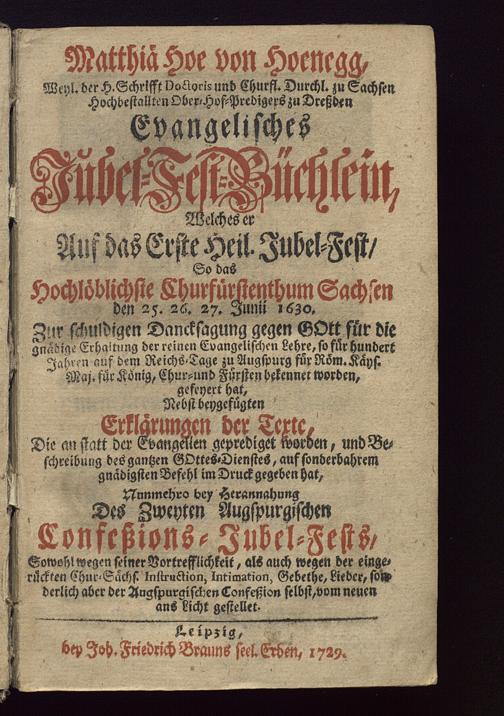 Matthiä Hoe von Hoenegg,
Weyl. der H. Schrifft Doctoris und Churfl. Durchl. zu Sachsen
Hochbestallten Ober-Hof-Predigers zu Dreßden
Evangelisches
Jubel-Fest-Büchlein,
Welches er
Auf das Erste Heil. Jubel-Fest/
So das
Hochlöblichste Churfürstenthum Sachsen
den 25. 26. 27. Junii 1630.
Zur schuldigen Dancksagung gegen GOtt für die
gnädige Erhaltung der reinen Evangelischen Lehre, so für hundert
Jahren auf dem Reichs-Tage zu Augspurg für Röm. Käys.
Maj. für König, Chur- und Fürsten bekennet worden,
gefeyret hat,
Nebst beygefügten
Erklärungen der Texte,
Die an statt der Evangelien geprediget worden, und Be-
schreibung des gantzen GOttes-Dienstes, auf sonderbahrem
gnädigsten Befehl im Druck gegeben hat,
Nunmehro bey Herannahung
Des Zweyten Augspurgischen
Confeßions-Jubel-Fests,
Sowohl wegen seiner Vortrefflichkeit, als auch wegen der einge-
rückten Chur-Sächs. Instruction, Intimation, Gebethe, Lieder, son-
derlich aber der Augspurgischen Confeßion selbst, vom neuen
ans Licht gestellet.
Leipzig,
bey Joh. Friedrich Brauns seel. Erben, 1729.